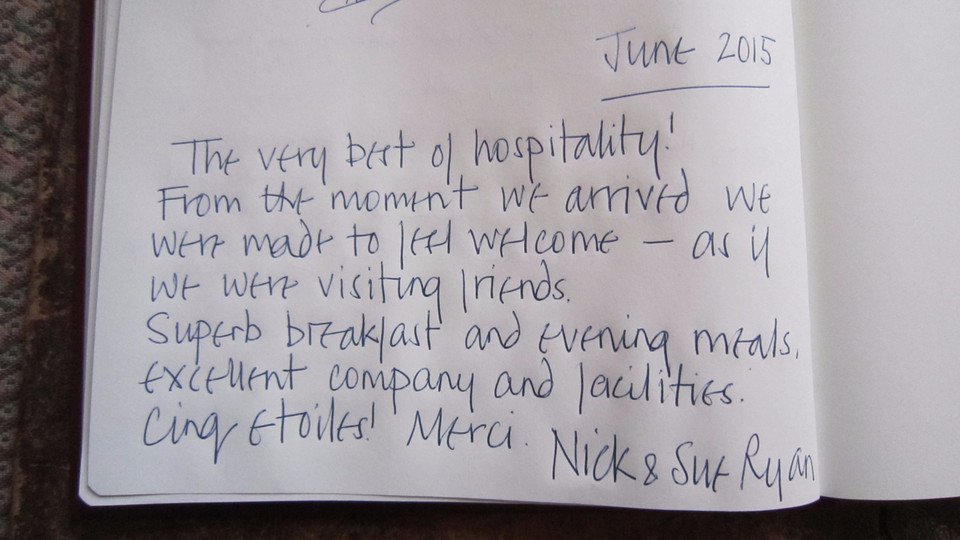 June 2015
The very best of hospitality!
From the moment we arrived we
were made to feel welcome — as if
we were visiting friends.
Superb breakfast and evening meals,
excellent company and facilities.
Cinq etoiles! Merci.
Nick & Sue Ryan